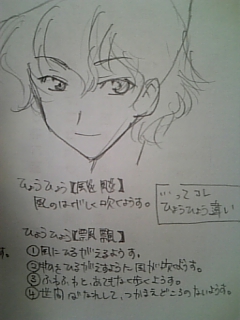 ひょうひょう【颷颷】
風のはげしく吹くようす。
…ってコレ
ひょうひょう違い
ひょうひょう【飄飄】
す。
①風にひるがえるようす。
②ひるがえすように風が吹くようす。
③ふらふらと、あてもなく歩くようす。
④世間ばなれして、つかまえどころのないようす。